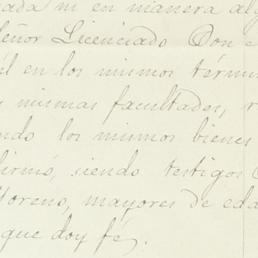 ada ni en manera al
eñor Licenciado Don
él en los mismos térm
mismas facultades,
ndo los mismos bienes
firmó, siendo testigos
oreno, mayores de eda
que doy fé.